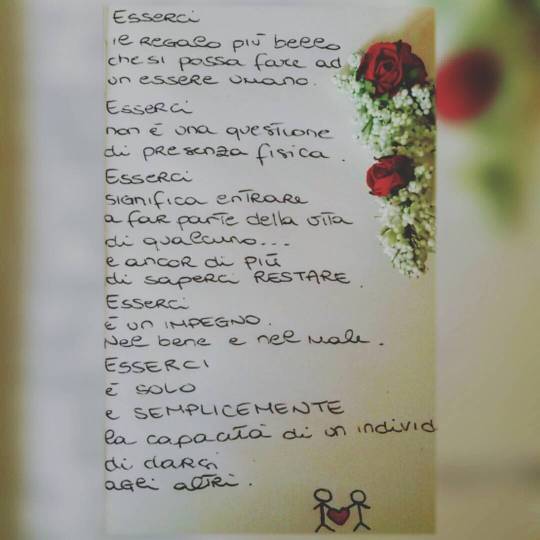 Esserci
il regalo più bello
che si possa fare ad
un essere umano.
Esserci
non è una questione
di presenza fisica.
Esserci
significa entrare
a far parte della vita
di qualcuno...
e ancor di più
di saperci RESTARE.
Esserci
è un IMPEGNO.
Nel bene e nel male.
ESSERCI
è SOLO
e SEMPLICEMENTE
la capacità di un individ
di darsi
agli altri.